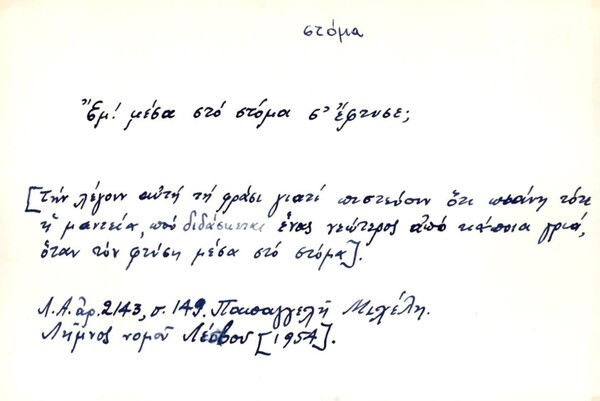 στόμα
Ἔμ! μέσα στό στόμα σ' ἔφτυσε;
[Τήν λέγουν αὐτή τή φράσι γιατί πιστεύουν ὅτι πιάνη τότε
ἡ μαντεία, πού διδάσκεται ἕνας νεώτερος ἀπό κάποια γριά,
ὅταν τόν φτύση μέσα στό στόμα].
Λ.Α. ἀρ. 2143, σ. 149. Παπαγγελῆ Μιχέλη.
Λῆμνος νομοῦ Λέσβου [1954].